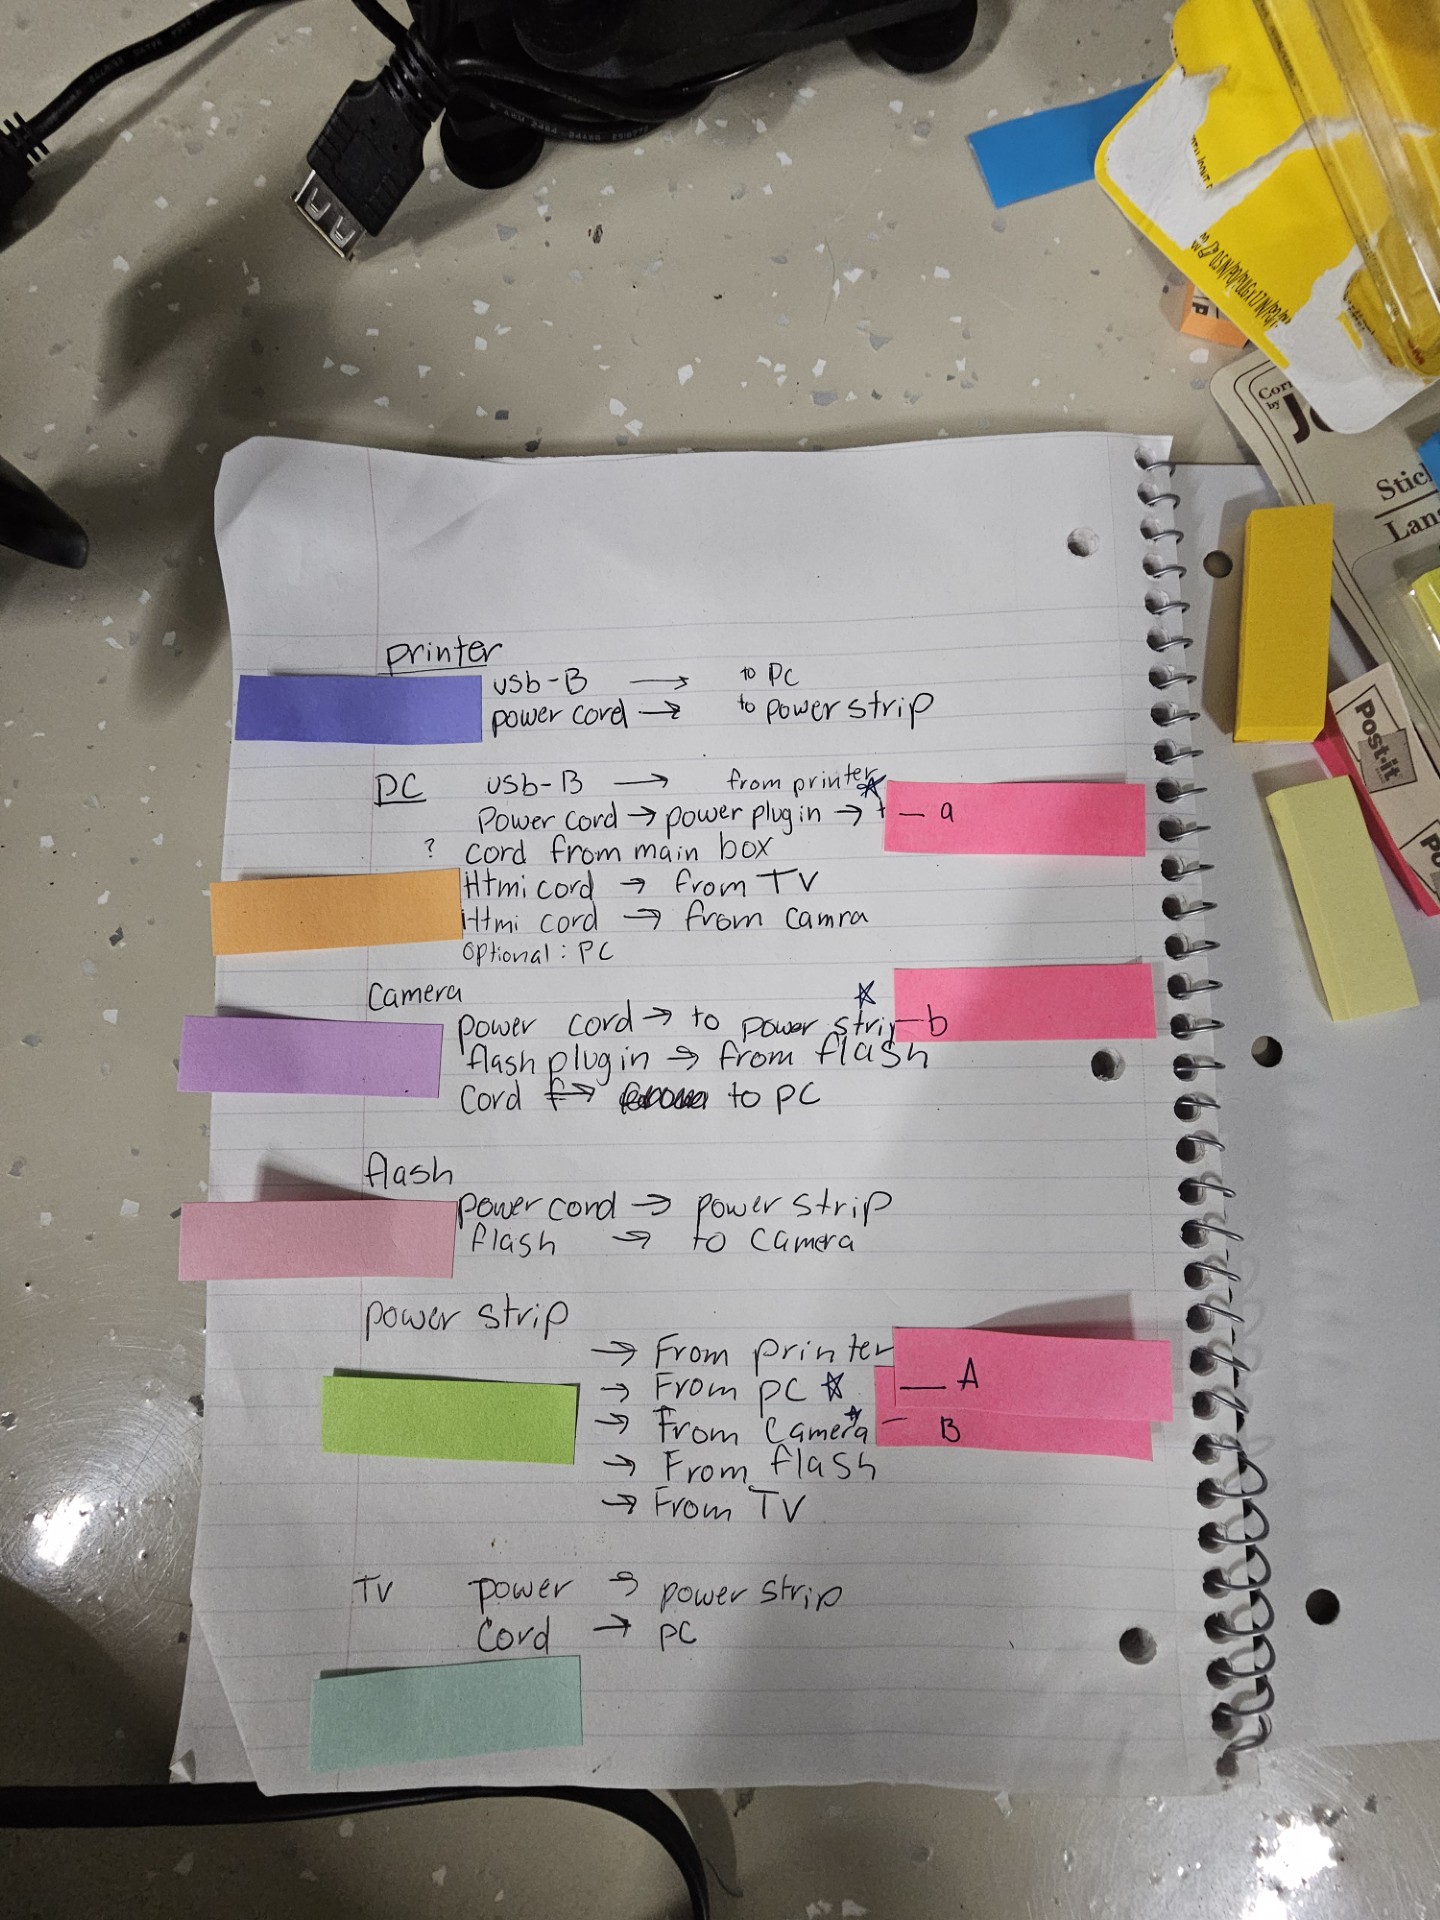 Corn
by
Stic
Lan
Post-it
Po
printer
usb-B → to PC
power cord → to power strip
PC usb-B → from printer ☆
Power cord → power plugin → — a
? cord from main box
Htmi cord → from TV
Htmi cord → from camra
optional: PC
Camera ☆
power cord → to power strip — b
flash plugin → from flash
Cord → to PC
flash
power cord → power strip
flash → to camera
power strip
→ From printer
→ From PC ☆ — A
→ From Camera ☆ — B
→ From flash
→ From TV
TV power → power strip
Cord → PC